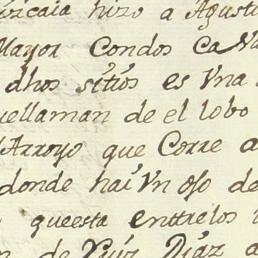 hizo a Agusti
Mayor Condos Ca
dhos sitios es Vna
uellaman de el lobo
Arroyo que Corre a
donde hai Vn oJo de
queesta enttrelos
de Ruiz Diaz a